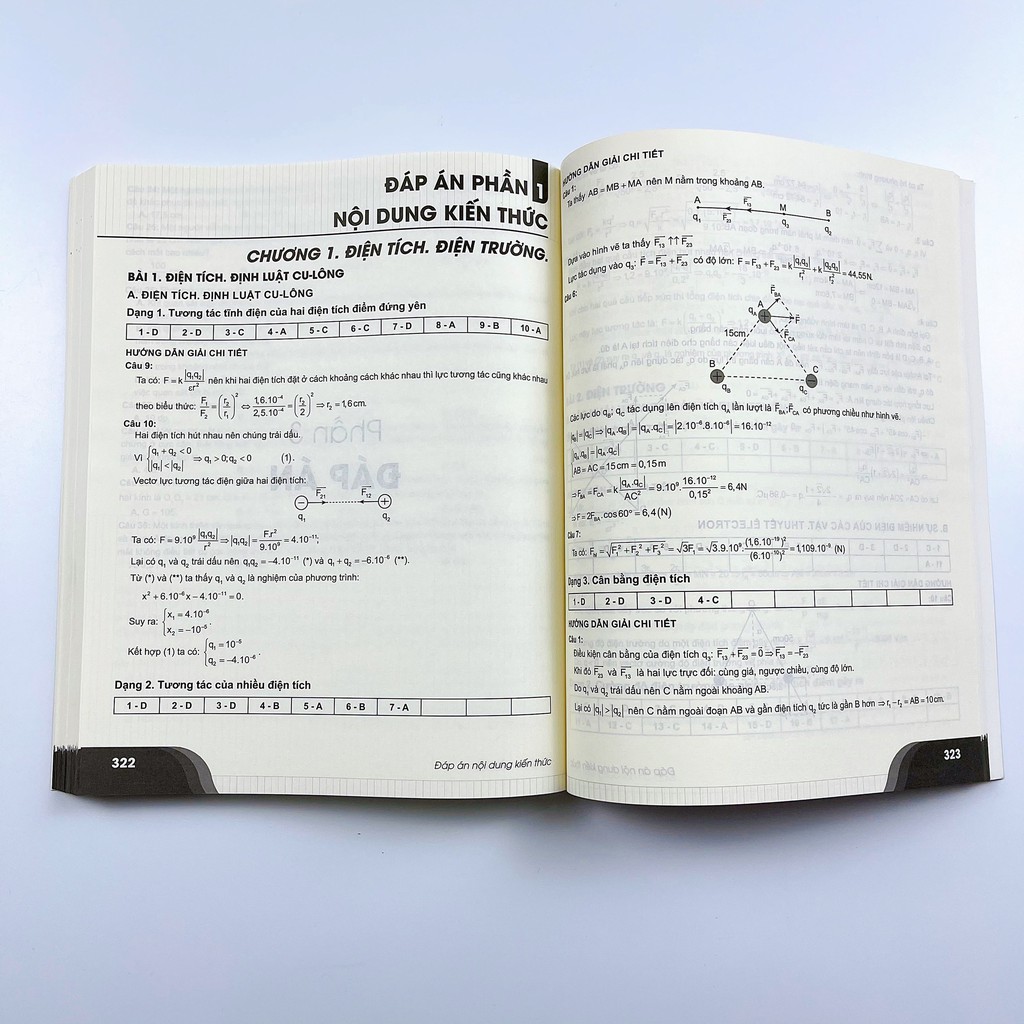 ĐÁP ÁN PHẦN 1
NỘI DUNG KIẾN THỨC
CHƯƠNG 1. ĐIỆN TÍCH. ĐIỆN TRƯỜNG.
BÀI 1. ĐIỆN TÍCH. ĐỊNH LUẬT CU-LÔNG
A. ĐIỆN TÍCH. ĐỊNH LUẬT CU-LÔNG
Dạng 1. Tương tác tĩnh điện của hai điện tích điểm đứng yên
1 - D 2 - D 3 - C 4 - A 5 - C 6 - C 7 - D 8 - A 9 - B 10 - A
HƯỚNG DẪN GIẢI CHI TIẾT
Câu 9:
Ta có: F = k |q₁q₂|/εr² nên khi hai điện tích đặt ở cách khoảng cách khác nhau thì lực tương tác cũng khác nhau
theo biểu thức: F₁/F₂ = (r₂/r₁)² ⇔ 1,6.10⁻⁴/2,5.10⁻⁴ = (r₂/2)² ⇒ r₂ = 1,6cm.
Câu 10:
Hai điện tích hút nhau nên chúng trái dấu.
Vì {q₁ + q₂ < 0 |q₁| < |q₂| ⇒ q₁ > 0; q₂ < 0 (1).
Vectơ lực tương tác điện giữa hai điện tích:
F₂₁ F₁₂
q₁ q₂
Ta có: F = 9.10⁹ |q₁q₂|/r² ⇒ |q₁q₂| = F.r²/9.10⁹ = 4.10⁻¹¹;
Lại có q₁ và q₂ trái dấu nên q₁q₂ = −4.10⁻¹¹ (*) và q₁ + q₂ = −6.10⁻⁶ (**).
Từ (*) và (**) ta thấy q₁ và q₂ là nghiệm của phương trình:
x² + 6.10⁻⁶x − 4.10⁻¹¹ = 0.
Suy ra: {x₁ = 4.10⁻⁶ x₂ = −10⁻⁵.
Kết hợp (1) ta có: {q₁ = 10⁻⁵ q₂ = −4.10⁻⁶.
Dạng 2. Tương tác của nhiều điện tích
1 - D 2 - D 3 - D 4 - B 5 - A 6 - B 7 - A
322
Đáp án nội dung kiến thức
HƯỚNG DẪN GIẢI CHI TIẾT
Câu 1:
Ta thấy AB = MB + MA nên M nằm trong khoảng AB.
A F₁₃ M B
q₁ F₂₃ q₃ q₂
Dựa vào hình vẽ ta thấy F₁₃ ↑↑ F₂₃
Lực tác dụng vào q₃: F = F₁₃ + F₂₃ có độ lớn: F = F₁₃ + F₂₃ = k |q₁q₃|/r₁² + k |q₂q₃|/r₂² = 44,55N.
Câu 6:
F_BA
A
q_A F
15cm F_CA
B C
q_B q_C
Các lực do q_B; q_C tác dụng lên điện tích q_A lần lượt là F_BA; F_CA có phương chiều như hình vẽ.
|q_B| = |q_C| ⇒ |q_A.q_B| = |q_A.q_C| = |2.10⁻⁶.8.10⁻⁶| = 16.10⁻¹²
{|q_A.q_B| = |q_A.q_C|
AB = AC = 15cm = 0,15m
⇒ F_BA = F_CA = k |q_A.q_C|/AC² = 9.10⁹. 16.10⁻¹²/0,15² = 6,4N
⇒ F = 2F_BA.cos60° = 6,4(N)
Câu 7:
Ta có: = √F₁² + F₂² + F₃² = √3F₁ = √3.9.10⁹. (1,6.10⁻¹⁹)²/(6.10⁻¹⁰)² = 1,109.10⁻⁹ (N)
Dạng 3. Cân bằng điện tích
1 - D 2 - D 3 - D 4 - C
HƯỚNG DẪN GIẢI CHI TIẾT
Câu 1:
Điều kiện cân bằng của điện tích q₃: F₁₃ + F₂₃ = 0 ⇒ F₁₃ = −F₂₃
Khi đó F₂₃ và F₁₃ là hai lực trực đối: cùng giá, ngược chiều, cùng độ lớn.
Do q₁ và q₂ trái dấu nên C nằm ngoài khoảng AB.
Lại có |q₁| > |q₂| nên C nằm ngoài đoạn AB và gần điện tích q₂ tức là gần B hơn ⇒ r₁ − r₂ = AB = 10cm.
323